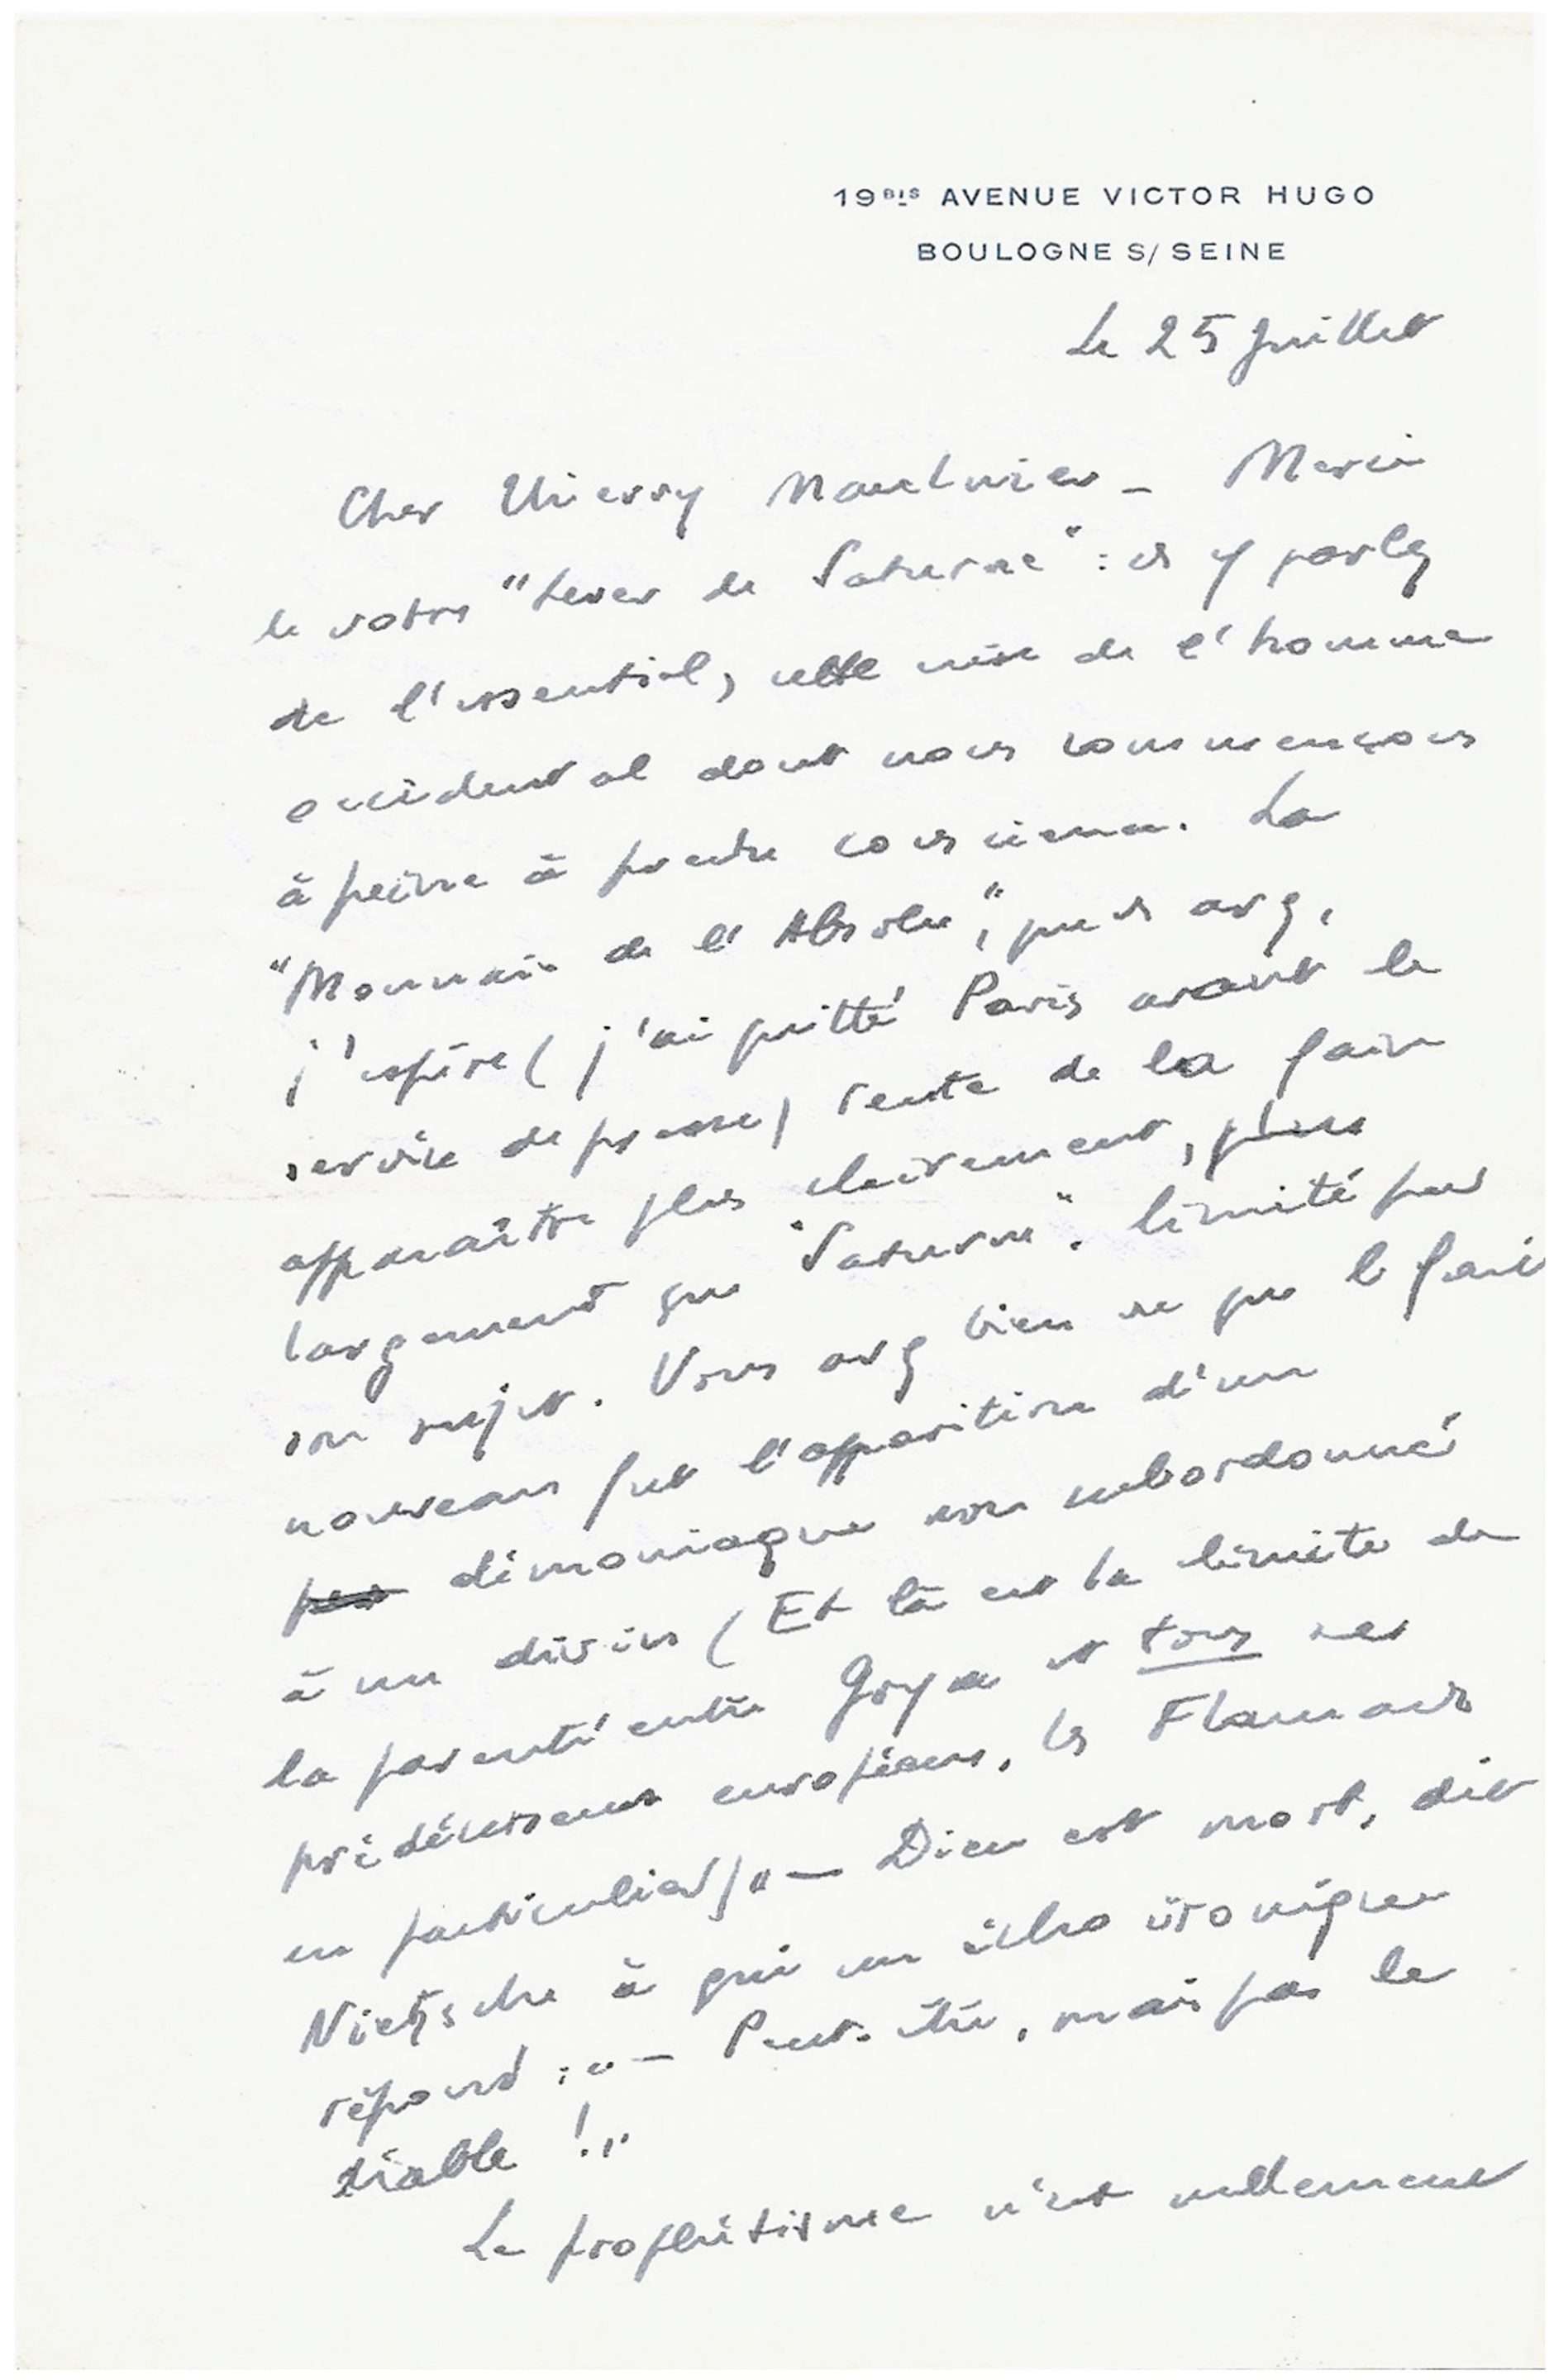 19BIS AVENUE VICTOR HUGO
BOULOGNE S/ SEINE
Le 25 Juillet
Cher Thierry Maulnier – Merci
de votre "Lever de Saturne" : vs y parlez
de l'essentiel, cette crise de l'homme
occidental dont nous commençons
à peine à prendre conscience. La
"Monnaie de l'Absolu", que vs avez,
j'espère (j'ai quitté Paris avant le
service de presse) tente de la faire
apparaître plus clairement, plus
largement que "Saturne", limité par
son sujet. Vous avez bien vu que le fait
nouveau fut l'apparition d'un
démoniaque non subordonné
à un divin (Et là est la limite de
la parenté entre Goya et tous ses
prédécesseurs européens, les Flamands
en particulier) "– Dieu est mort, dit
Nietzsche à qui un écho ironique
répond : "– Peut-être, mais pas le
diable !"
Le prophétisme n'est nullement